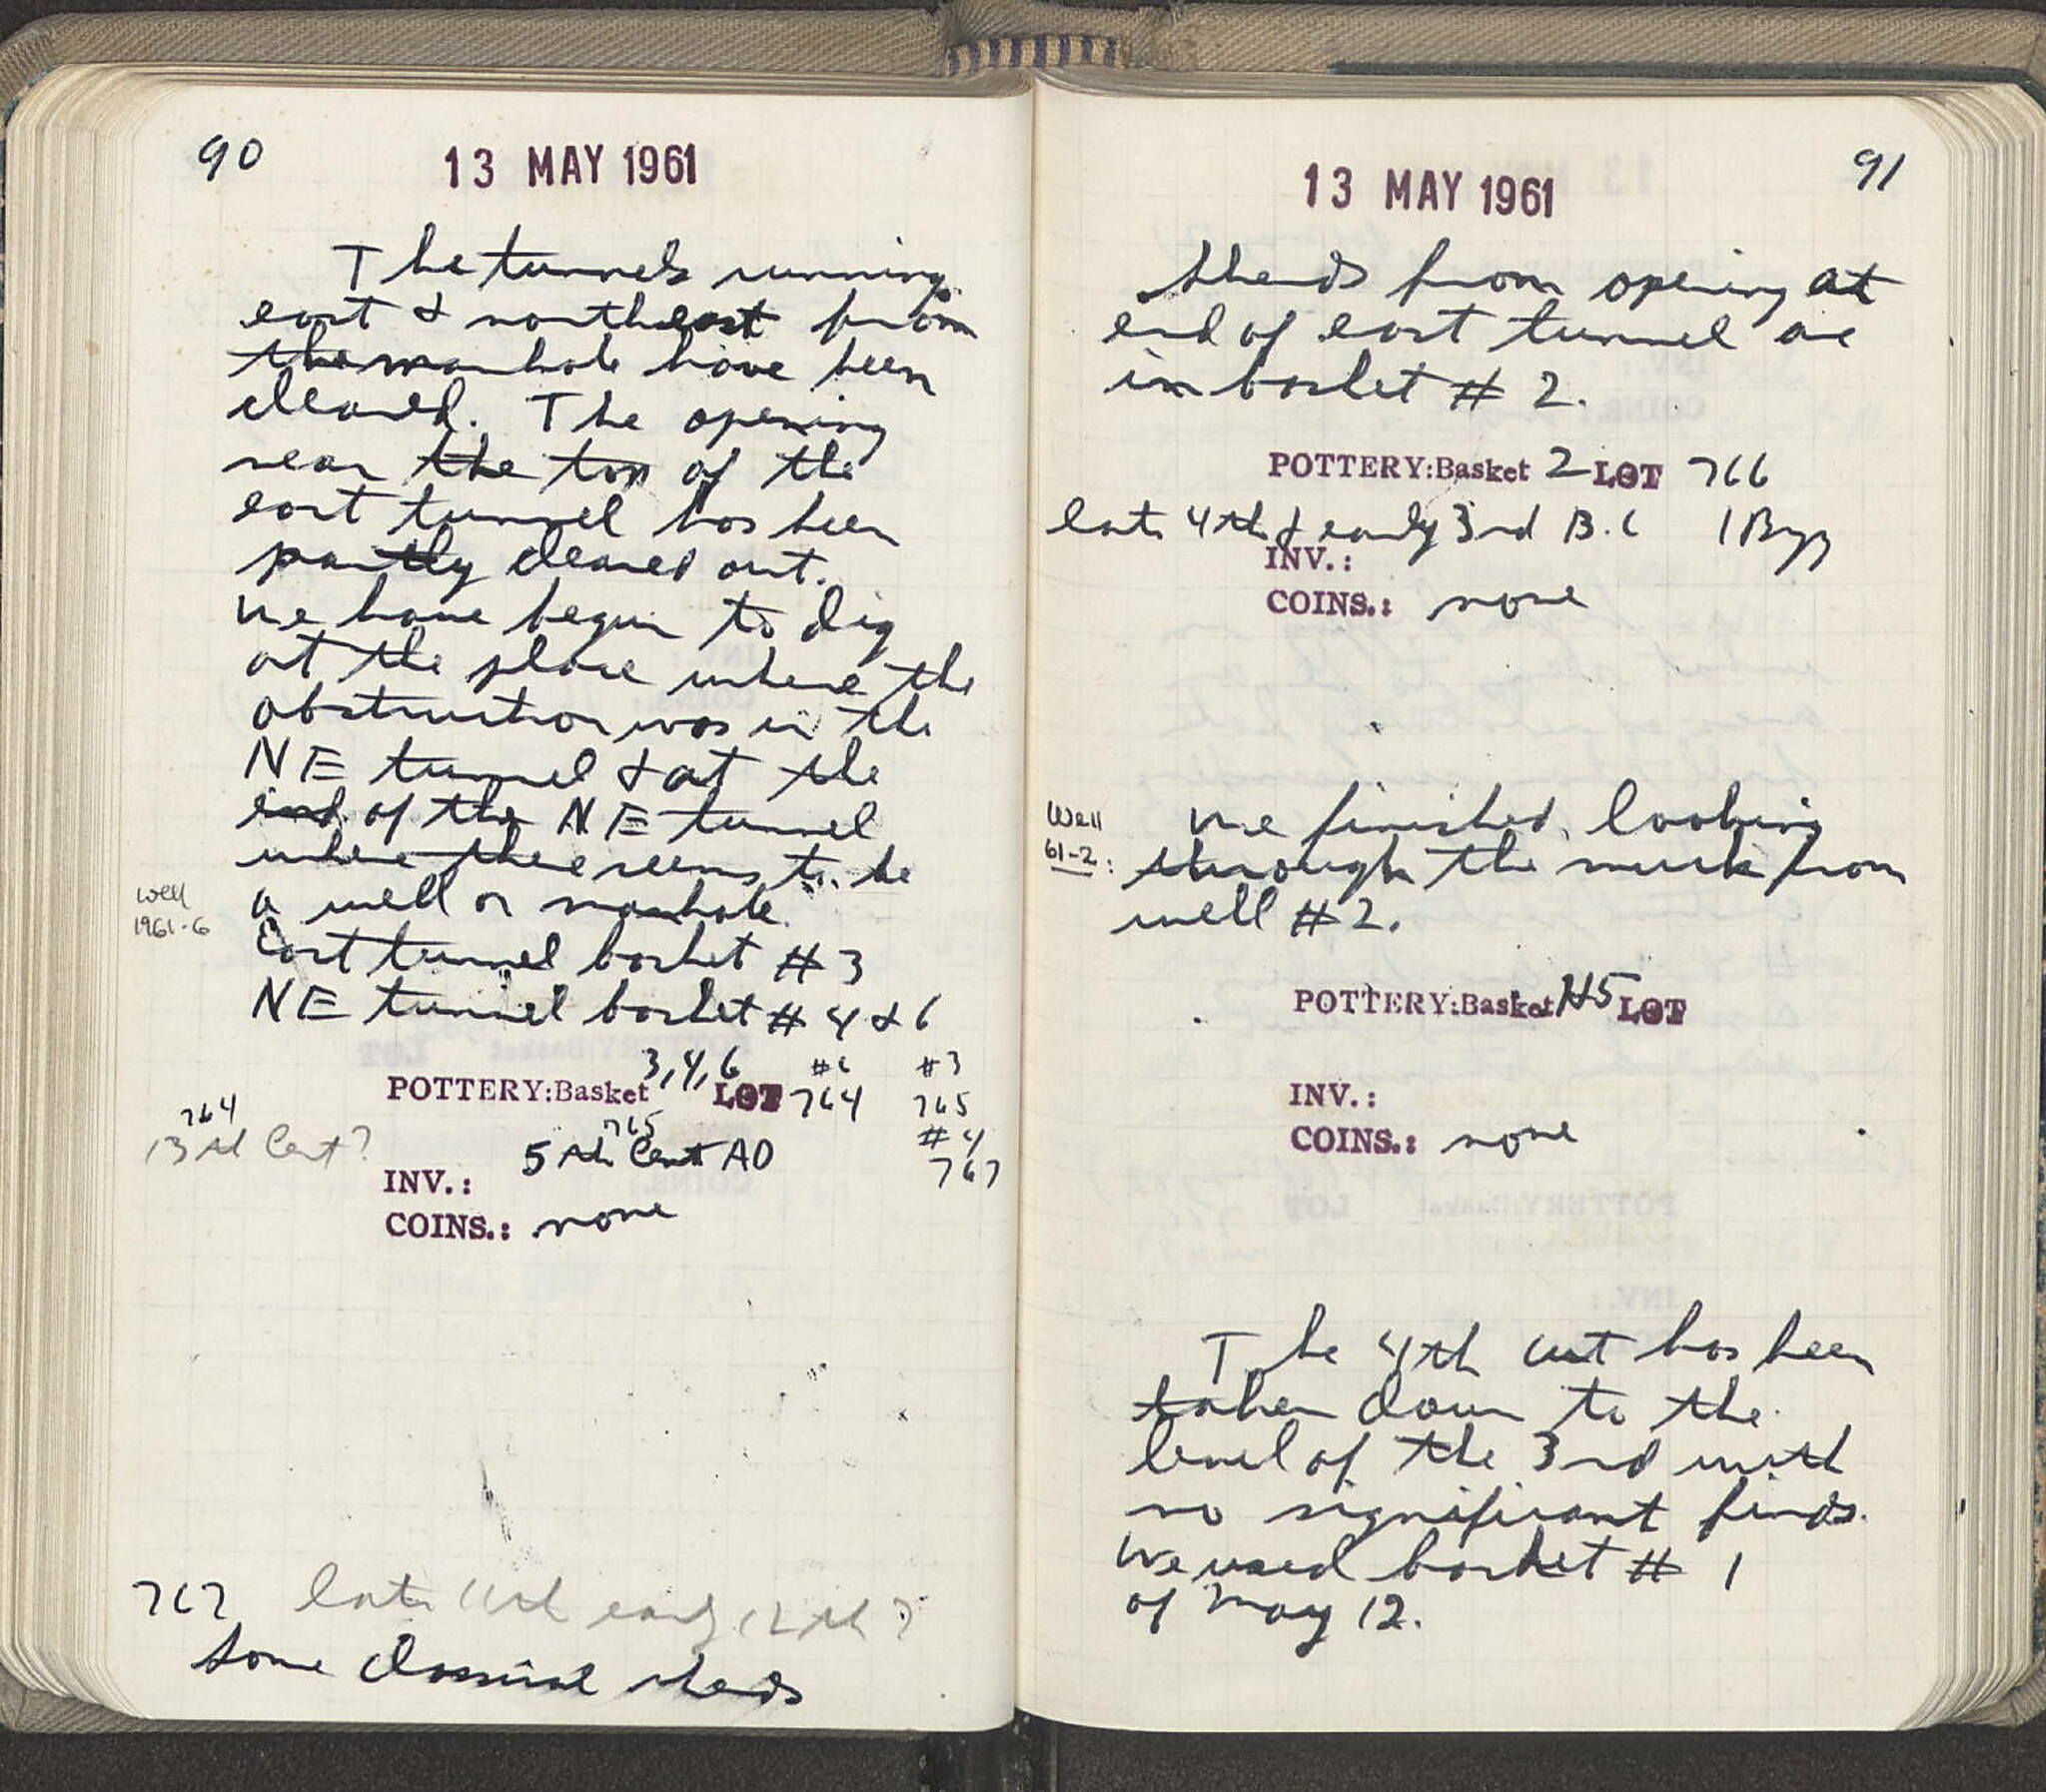 90
13 MAY 1961
The tunnels running
east & northeast from
the manhole have been
cleared. The opening
near the top of the
east tunnel has been
partly cleared out.
We have begun to dig
at the place where the
obstruction was in the
NE tunnel & at the
end of the NE tunnel
where there seems to be
a well or manhole.
Well
1961-6
East tunnel basket #3
NE tunnel basket # 4 & 6
POTTERY:Basket 3,4,6 LOT #6 764 #3 765
#4 767
764
13th Cent?
765
5th Cent AD
INV.:
COINS.: none
767 late 11th early 12th?
Some classical sherds
91
13 MAY 1961
Sherds from opening at
end of east tunnel are
in basket # 2.
POTTERY:Basket 2 LOT 766
late 4th & early 3rd B.C 1 Byz
INV.:
COINS.: none
Well
61-2:
We finished looking
through the muck from
well #2.
POTTERY:Basket #5 LOT
INV.:
COINS.: none
The 4th cut has been
taken down to the
level of the 3rd with
no significant finds.
We used basket # 1
of May 12.